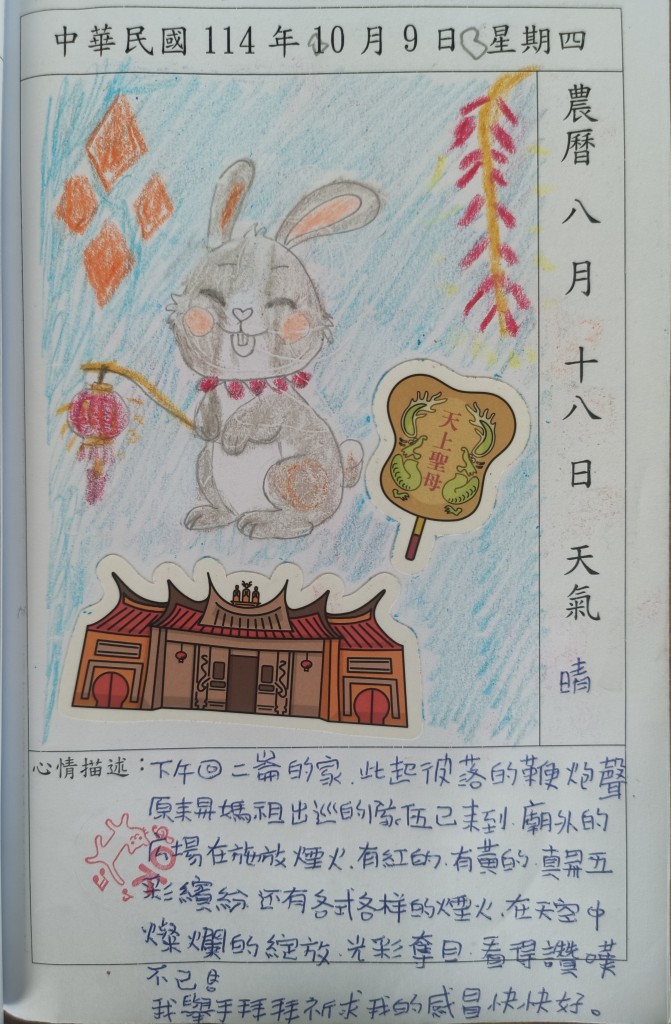 中華民國 114 年 10 月 9 日 星期四
農曆 八 月 十八 日 天氣 晴
天上聖母
心情描述：下午回二崙的家.此起彼落的鞭炮聲
原來是媽祖出巡的隊伍已來到.廟外的
广場在施放煙火.有紅的.有黃的.真是五
彩繽紛.還有各式各樣的煙火.在天空中
燦爛的綻放.光彩奪目.看得讚嘆
不已!
我舉手拜拜祈求我的感冒快快好。